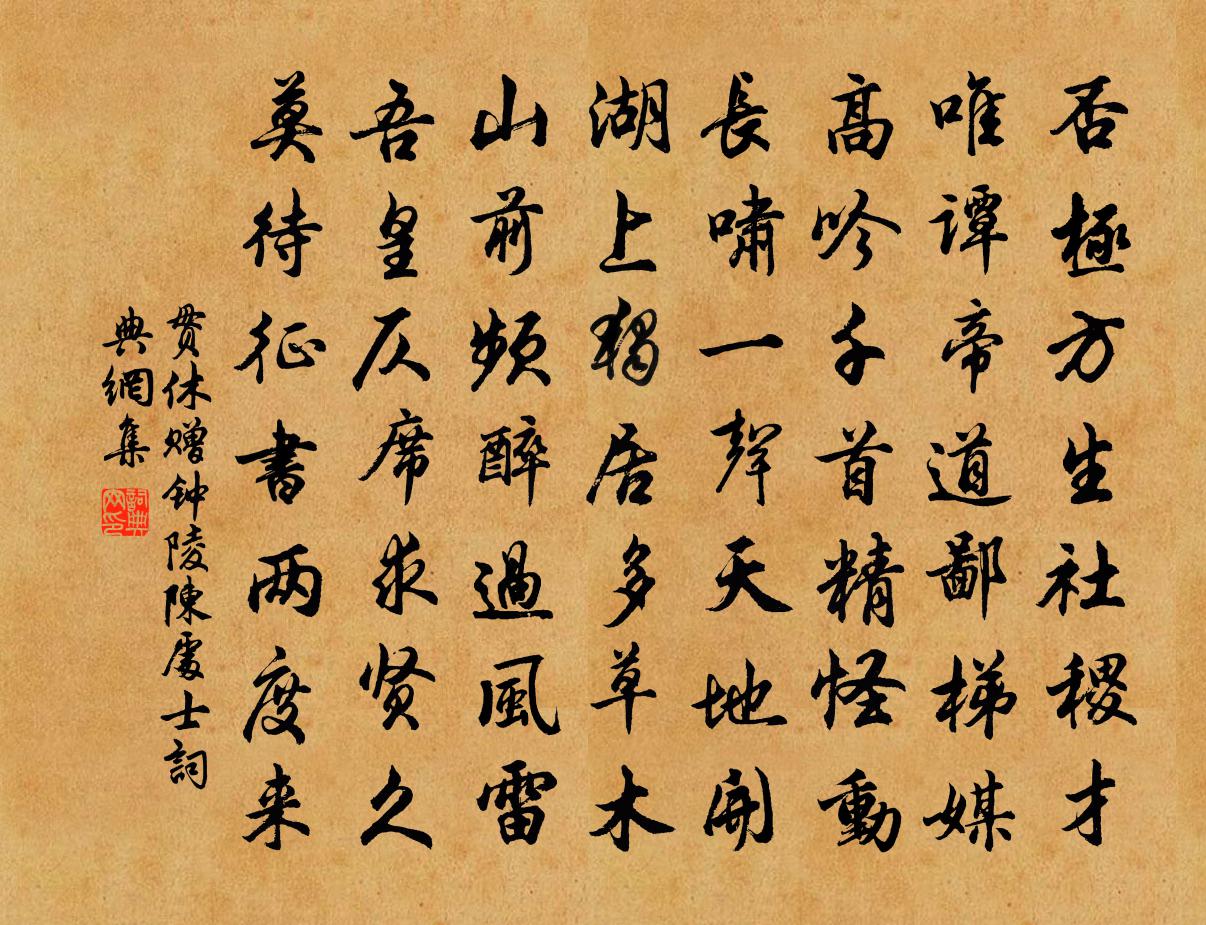 否極方生社稷才
唯譚帝道鄙梯媒
高吟千首精怪動
長嘯一聲天地開
湖上獨居多草木
山前頻醉過風雷
吾皇仄席求贤久
莫待征書两度来
贯休赠钟陵陳處士詞
典網集
詞典网印